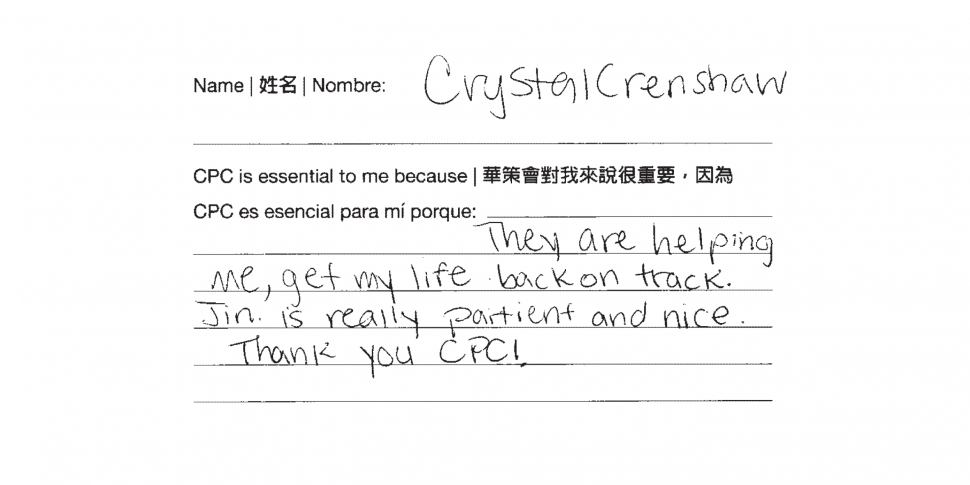 Name | 姓名 | Nombre: Crystal Crenshaw
CPC is essential to me because | 華策會對我來說很重要，因為
CPC es esencial para mí porque:
They are helping
me, get my life back on track.
Jin. is really partient and nice.
Thank you CPC!